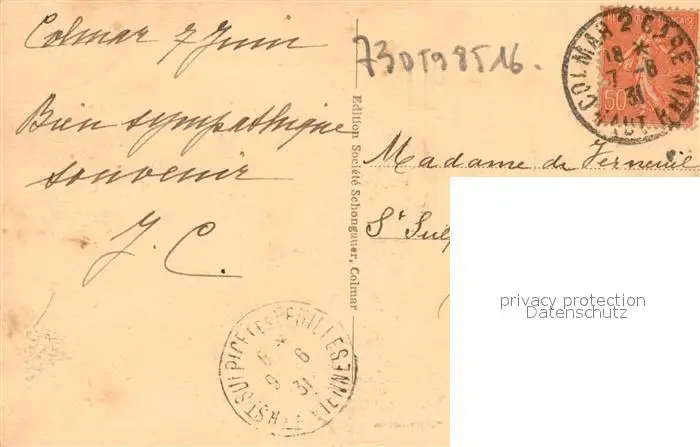 Colmar 7 Juin
Bien sympathique
souvenir
J. C.
73OT98516.
Edition Société Schongauer, Colmar
COLMAR 2 GARE
18 *
7 -6
31
50
Madame de Verneuil
St Sulp
ST SULPICE LES FEUILLES
*
6
9 6
31
HTE VIENNE
privacy protection
Datenschutz